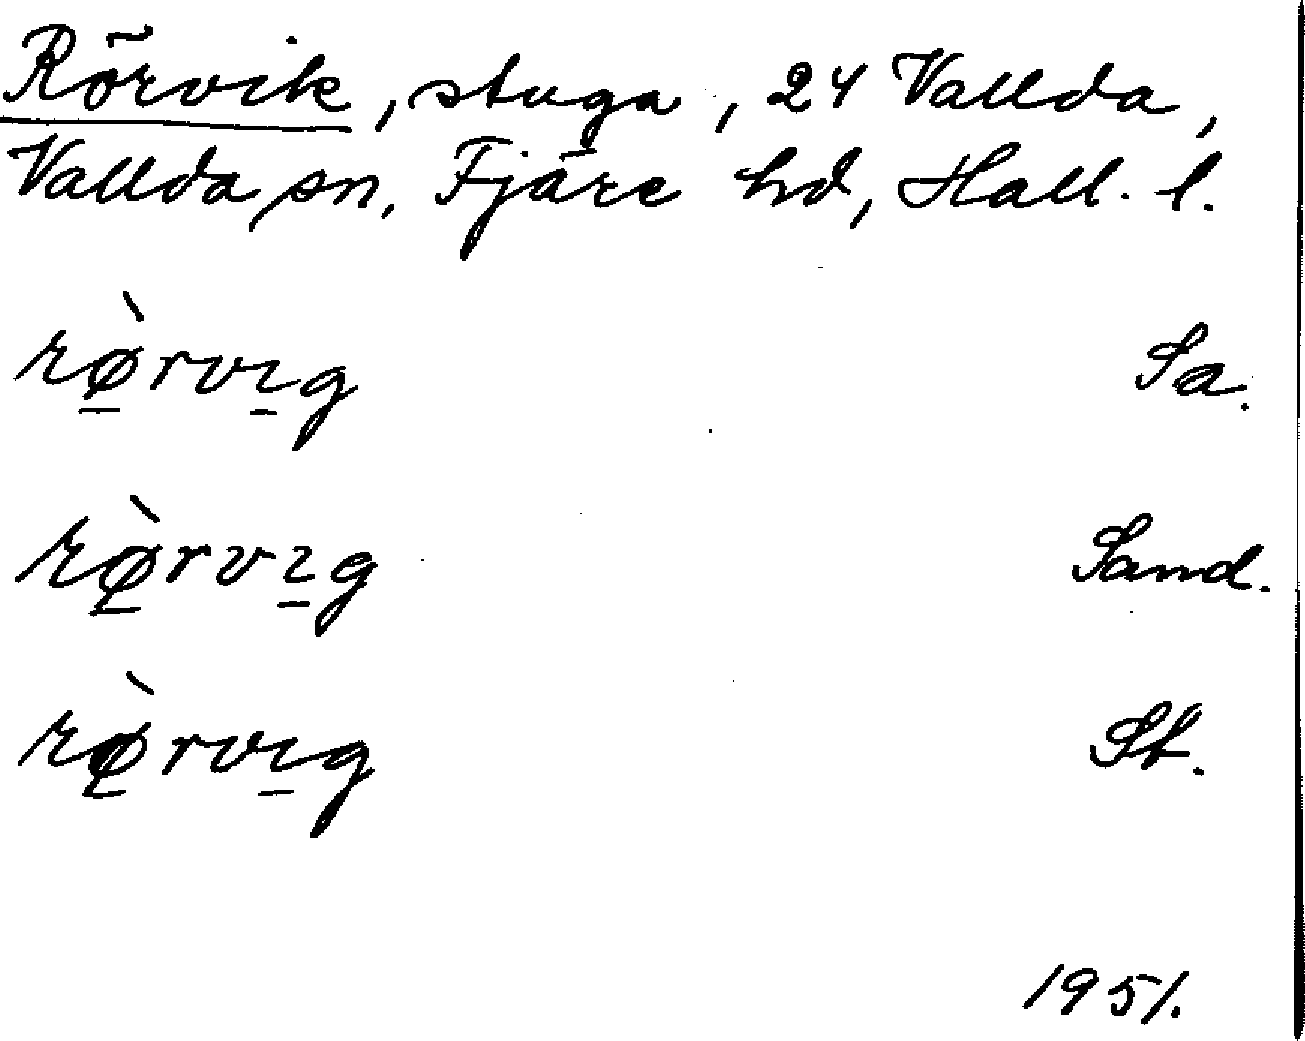 Rörvik, stuga, 24 Vallda,
Vallda sn, Fjäre hd, Hall. l.
rø̲̀rvı̲g Sa.
rø̲̀rvı̲g Sand.
rø̲̀rvı̲g St.
1951.